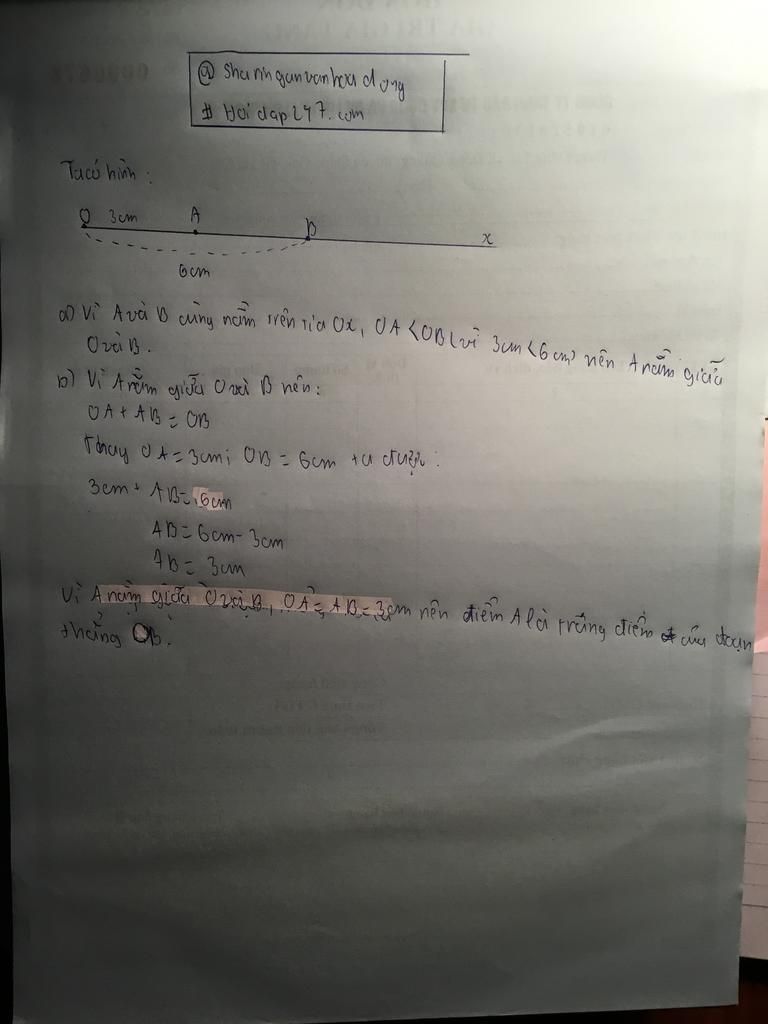 @ sharinganvanhoa dong
# Hoidap247.com
Ta có hình:
O 3cm A B x
6cm
a) Vì A và B cùng nằm trên tia Ox, OA < OB (vì 3cm < 6cm) nên A nằm giữa
O và B.
b) Vì A nằm giữa O và B nên:
OA + AB = OB
Thay OA = 3cm; OB = 6cm ta được:
3cm + AB = 6cm
AB = 6cm - 3cm
AB = 3cm
Vì A nằm giữa O và B, OA = AB = 3cm nên điểm A là trung điểm của đoạn
thẳng OB.